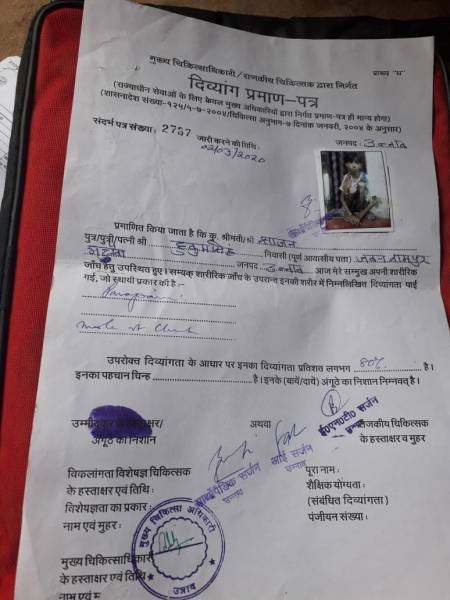 मुख्य चिकित्साधिकारी/राजकीय चिकित्सक द्वारा निर्गत
प्रारूप "घ"
दिव्यांग प्रमाण-पत्र
(राज्याधीन सेवाओं के लिए केवल मुख्य अधिकारियों द्वारा निर्गत प्रमाण-पत्र ही मान्य होगा)
(शासनादेश संख्या-१२५/५-७-२००४/चिकित्सा अनुभाग-७ दिनांक जनवरी, २००४ के अनुसार)
संदर्भ पत्र संख्या : 2757 जारी करने की तिथि : 02/03/2020
जनपद : उन्नाव
प्रमाणित किया जाता है कि कु. श्रीमती/श्री साजन
पुत्र/पुत्री/पत्नी श्री निवासी (पूर्ण आवासीय पता)
जनपद उन्नाव आज मेरे सम्मुख अपनी शारीरिक
जाँच हेतु उपस्थित हुए। सम्यक् शारीरिक जाँच के उपरान्त इनकी शरीर में निम्नलिखित दिव्यांगता पाई
गई, जो स्थायी प्रकार की है :-
उपरोक्त दिव्यांगता के आधार पर इनका दिव्यांगता प्रविशत लगभग 80% है।
इनका पहचान चिन्ह है। इनके (बायें/दायें) अंगूठे का निशान निम्नवत् है।
उम्मीदवार के हस्ताक्षर/
अंगूठे का निशान
अथवा
राजकीय चिकित्सक
के हस्ताक्षर व मुहर
ई०एन०टी० सर्जन
उन्नाव
आर्थोपैडिक सर्जन
उन्नाव
आई सर्जन
उन्नाव
विकलांगता विशेषज्ञ चिकित्सक
के हस्ताक्षर एवं तिथि :
विशेषज्ञता का प्रकार :
नाम एवं मुहर :
पूरा नाम :
शैक्षिक योग्यता :
(संबंधित दिव्यांगता)
पंजीयन संख्या :
मुख्य चिकित्सा अधिकारी
उन्नाव
मुख्य चिकित्साधिकारी
के हस्ताक्षर एवं तिथि
नाम एवं म